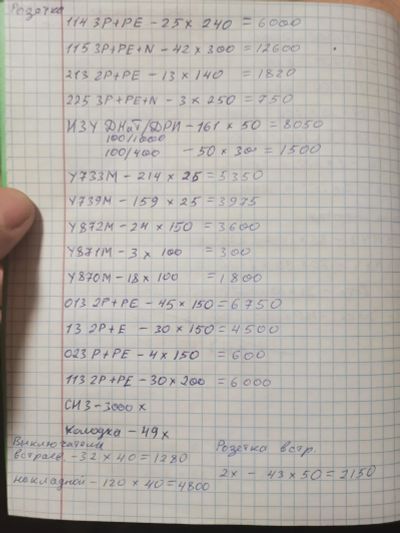 Розетка
114 3P+PE - 25 x 240 = 6000
115 3P+PE+N - 42 x 300 = 12600
213 2P+PE - 13 x 140 = 1820
225 3P+PE+N - 3 x 250 = 750
ИЗУ ДНаТ/ДРИ - 161 x 50 = 8050
100/1000
100/400 - 50 x 30 = 1500
У733М - 214 x 25 = 5350
У739М - 159 x 25 = 3975
У872М - 24 x 150 = 3600
У871М - 3 x 100 = 300
У870М - 18 x 100 = 1800
013 2P+PE - 45 x 150 = 6750
13 2P+E - 30 x 150 = 4500
023 P+PE - 4 x 150 = 600
113 2P+PE - 30 x 200 = 6000
СИЗ - 3000 x
Колодка - 49 x
Выключатели
встраев. - 32 x 40 = 1280
накладной - 120 x 40 = 4800
Розетка встр.
2x - 43 x 50 = 2150